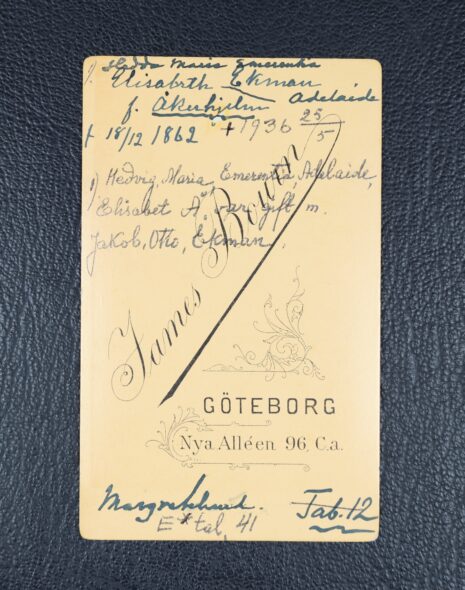 1) Hedda Maria Emerentia
Elisabeth Ekman
f. Åkerhjelm Adelaide
f 18/12 1862 +1936 25/5
1) Hedvig, Maria, Emerentia, Adelaide,
Elisabet Å. var gift m.
Jakob, Otto, Ekman.
James Bourn
GÖTEBORG
Nya Alléen 96, C.a.
Tab. 12
tal, 41